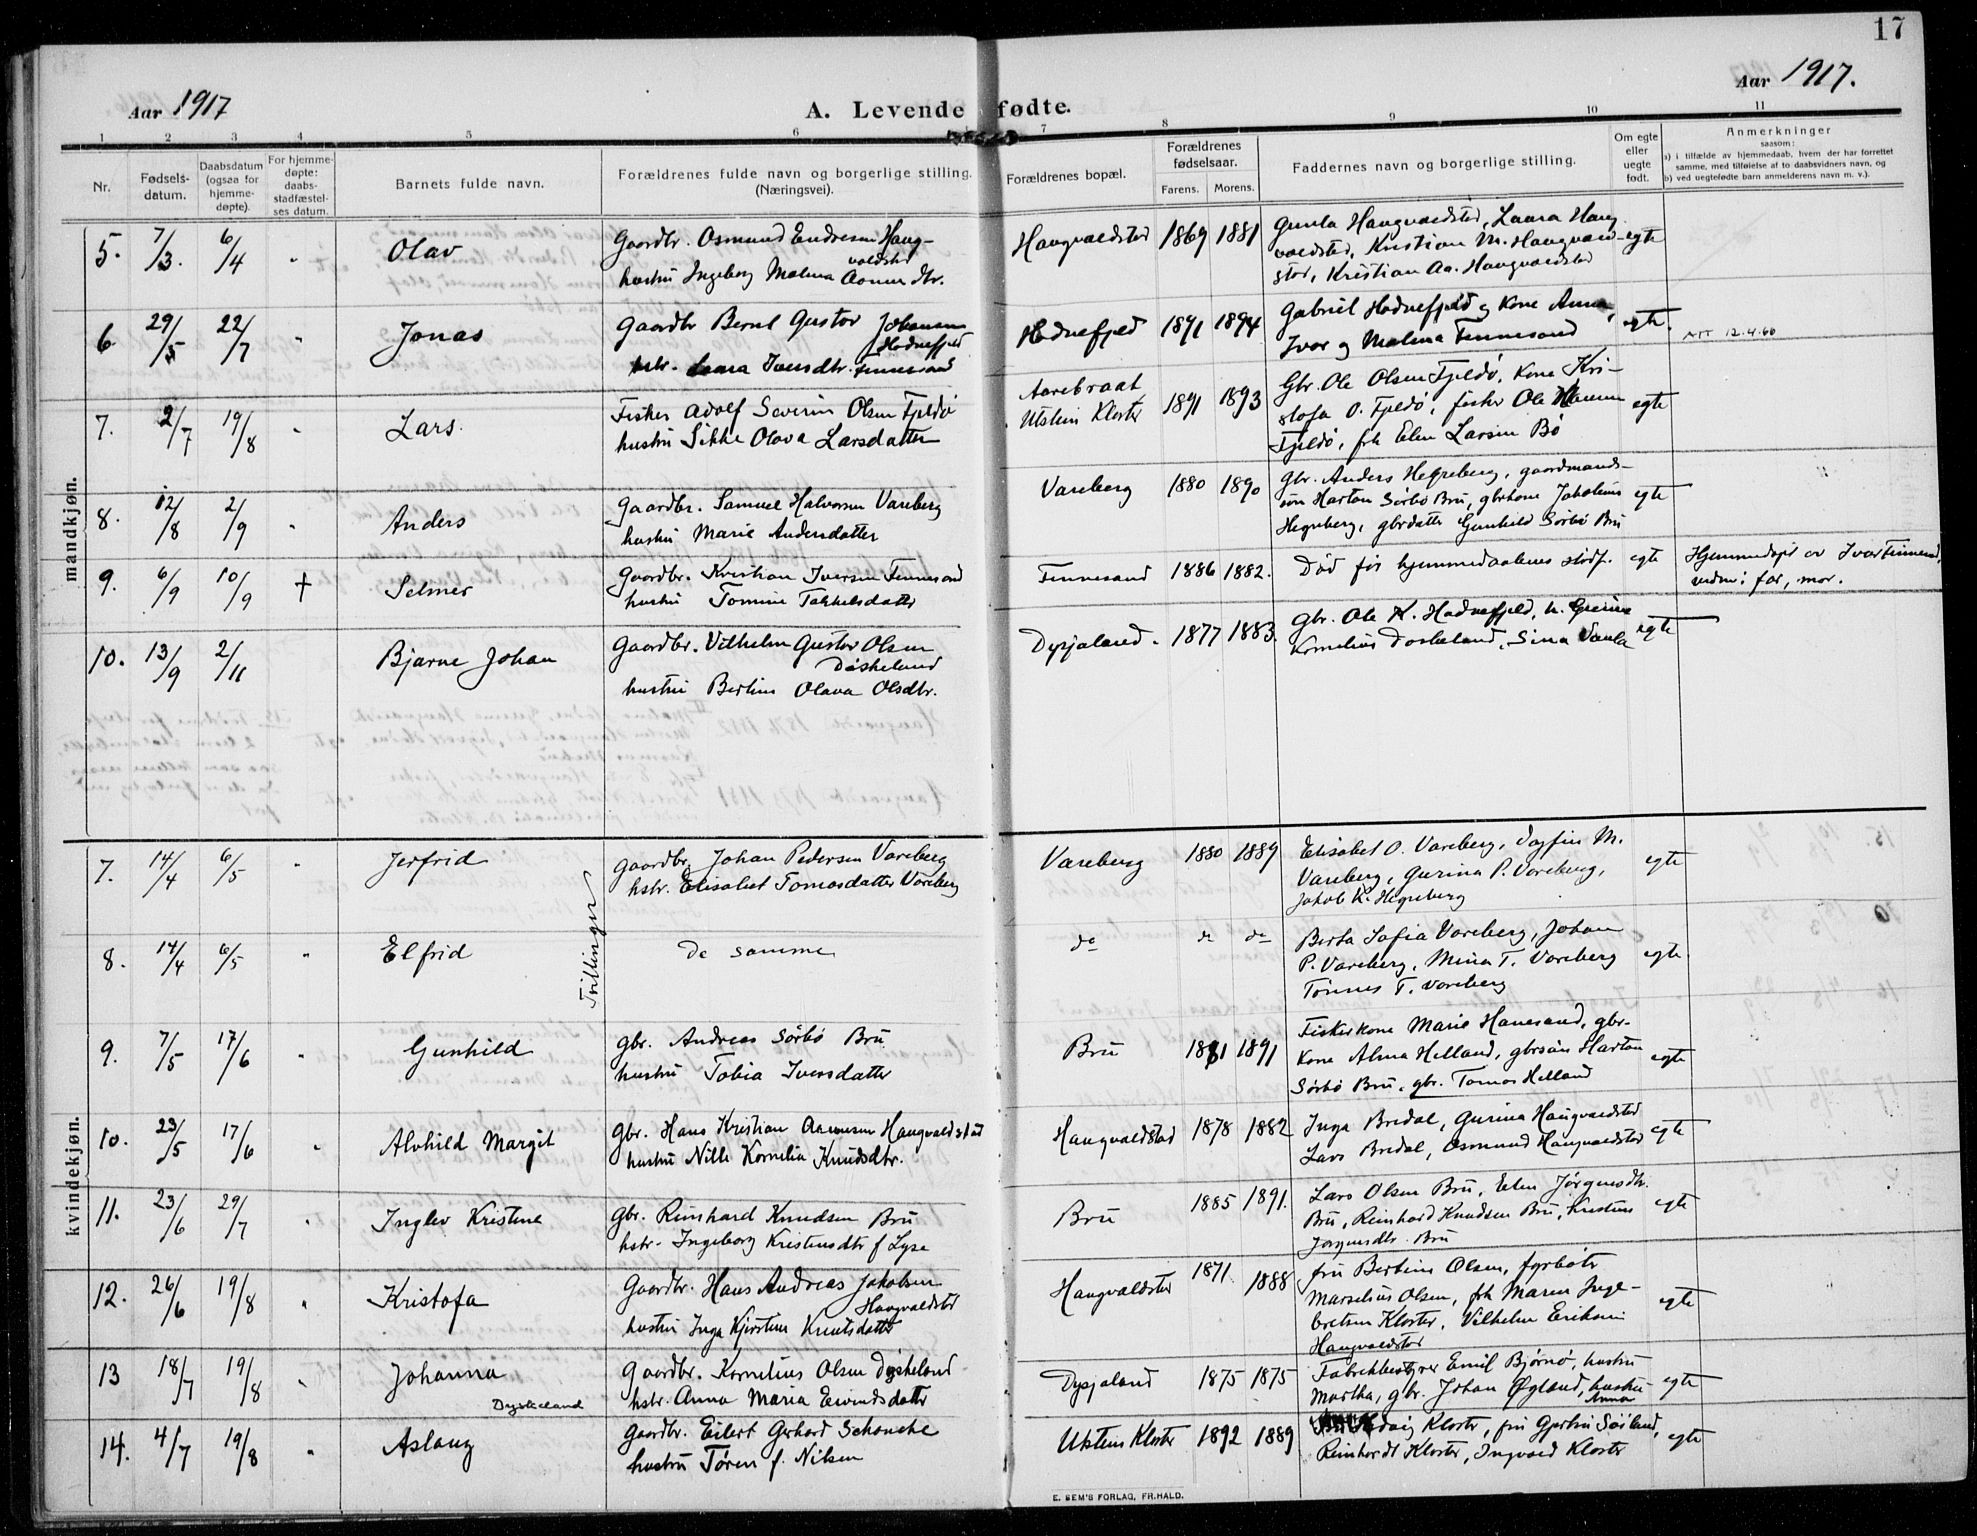 17
Aar 1917
A. Levende fødte.
Aar 1917.
1 2 3 4 5 6 7 8 9 10 11
Nr.
Fødsels-
datum.
Daabsdatum
(ogsaa for
hjemme-
døpte).
For hjemme-
døpte:
daabs-
stadfæstel-
ses datum.
Barnets fulde navn.
Forældrenes fulde navn og borgerlige stilling.
(Næringsvei).
Forældrenes bopæl.
Forældrenes
fødselsaar.
Farens. Morens.
Faddernes navn og borgerlige stilling.
Om egte
eller
uegte
født.
Anmerkninger
saasom:
a) i tilfælde av hjemmedaab, hvem der har forrettet
samme, med tilføielse af to daabsvidners navn, og
b) ved uegtefødte barn anmelderens navn m. v.).
mandkjøn.
5. 7/3. 6/4 " Olav
Gaardbr. Osmund Endresen Haug-
valdstad
hustru Ingeborg Malena Aanensdtr.
Haugvaldstad 1869 1881
Gunla Haugvaldstad, Laura Haug
valdstad, Kristian M. Haugvald-
stad, Kristian Aa. Haugvaldstad
egte
6 29/5 22/7 " Jonas
Gaardbr Bernt Gustav Johansen
Hodnefjeld
hstr. Laura Iversdtr. Finnesand
Hodnefjeld 1891 1894
Gabriel Hodnefjeld og Kone Anna,
Ivar og Malena Finnesand
egte.
ATT 12.4.60
7. 2/7 19/8 " Lars
Fisker Adolf Severin Olsen Fjeldø
hustru Sikke Olava Larsdatter
Aarebraat
Utstein Kloster 1891 1893
Gbr. Ole Olsen Fjeldø, Kone Kri-
stofa O. Fjeldø, fisker Ole
Fjeldø, frk Elen Larsen Bø
egte
8. 12/8 2/9 " Anders
Gaardbr. Samuel Halvorsen Vareberg
hustru Marie Andersdatter
Vareberg 1880 1890
gbr. Anders Hegreberg, gaardmands-
søn Hartan Sørbø Bru, gbrkone Jakobine
Hegreberg, gbrdatter Gunhild Sørbø Bru
egte
9. 6/9 10/9 † Selmer
Gaardbr. Kristian Iversen Finnesand
hustru Tomine Takkelsdatter
Finnesand 1886 1882.
Død før hjemmedaabens stadf. egte
Hjemmedøpt av Ivar Finnesand,
vidner: far, mor.
10. 13/9 2/11 Bjarne Johan
Gaardbr. Vilhelm Gustav Olsen
Døskeland
hustru Bertine Olava Olsdtr.
Dysjaland. 1877 1883.
gbr. Ole K. Hodnefjeld, h. Grerine
Kornelius Døskeland, Sina Vaula
egte
kvindekjøn.
7. 14/4 6/5 " Jerfrid
gaardbr. Johan Pedersen Vareberg
hstr. Elisabet Tomasdatter Vareberg
Vareberg 1880 1889
Elisabet O. Vareberg, Dagfin M.
Vareberg, Gurina P. Vareberg,
Jakob K. Hegreberg
egte
Tvillinger
8. 14/4 6/5 " Elfrid
De samme
do do do
Berta Sofia Vareberg, Johan
P. Vareberg, Mina T. Vareberg
Tønnes T. Vareberg
egte.
9. 7/5 17/6 " Gunhild
gbr. Andreas Sørbø Bru
hustru Tobia Iversdatter
Bru 1881 1891
Fiskerkone Marie Hanesand, gbr-
kone Alma Helland, gbrsøn Hartan
Sørbø Bru, gbr. Tomas Helland
egte
10. 23/5 17/6 " Alvhild Margit
gbr. Hans Kristian Aanensen Haugvaldstad
hustru Nille Kornelia Knudsdtr.
Haugvaldstad 1878 1882
Inga Bredal, Gurina Haugvaldstad
Lars Bredal, Osmund Haugvaldstad
egte
11. 23/6 29/7 " Inglev Kristine
gbr. Reinhard Knudsen Bru
hstr. Ingeborg Kristensdtr f Lyse
Bru 1885 1891.
Lars Olsen Bru, Elen Jørgensdtr.
Bru, Reinhard Knudsen Bru, Kristine
Jørgensdtr. Bru
egte
12. 26/6 19/8 " Kristofa
Gaardbr. Hans Andreas Jakobsen
Haugvaldstad
hustru Inga Kjerstine Knutsdatter
Haugvaldstad 1871 1888
fru Bertine Olsen, fyrbøter
Marselius Olsen, frk Maren Inge-
bretsen Kloster, Vilhelm Eriksen
Haugvaldstad
egte
13 18/7 19/8 " Johanna
Dyskeland
Gaardbr. Kornelius Olsen Dyskeland
hstr. Anna Maria Eivindsdatter
Dysjaland 1875 1875
Fabrikbestyrer Emil Bjørnø, hustru
Martha, gbr. Johan Øgland, hustru
Anna
egte
14. 4/7 19/8 " Aslaug
Gaardbr. Eilert Gerhard Schanche
hustru Tøren f. Nilsen
Utstein Kloster 1892 1889
Kloster, fru Gjertru Søiland,
Reinhardt Kloster, Ingvald Kloster
egte
E. SEM'S FORLAG, FR.HALD.